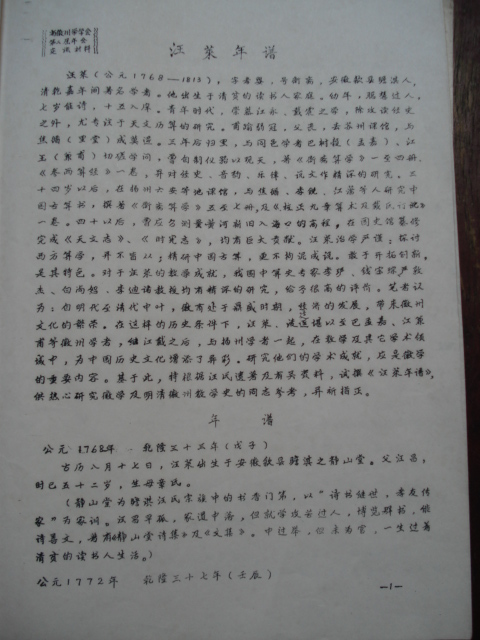 徽州学学会
第二届年会
交流材料
汪莱年谱
汪莱(公元1768—1813),字孝婴,号衡斋,安徽歙县瞻淇人,
清乾嘉年间著名学者。他出生于清贫的读书人家庭,幼年,聪慧过人,
七岁能诗,十五入庠。青年时代,崇慕江永、戴震之学,除攻读经史
之外,尤专注于天文历算的研究。甫逾弱冠,父丧,去苏州课馆,与
焦循(里堂)成莫逆。三年后归里,与同邑学者巴树榖(孟嘉)、江
玉(兼甫)切磋学问,曾自制仪器以观天,著《衡斋算学》一至四册、
《参两算经》一卷,并对经史、音韵、乐律、说文作精深的研究。三
十四岁以后,在扬州六安等地课馆,与焦循、李锐、江藩等人研究中
国古算书,撰著《衡斋算学》五至七册,及《校正九章算术及戴氏订讹》
一卷。四十以后,曾应召测量黄河新旧入海口的高程,在国史馆纂修
完成《天文志》、《时宪志》,均有巨大贡献。汪莱治学严谨:探讨
西方算学,并不盲从;精研中国古算,更不拘泥成说。敢于开拓创新,
是其特色。对于汪莱的数学成就,我国中算史专家李俨、钱宝琮严敦
杰、白尚恕、李迪诸教授均有精深的研究,给予很高的评价。笔者认
为:自明代至清代中叶,徽商处于鼎盛时期,经济的发展,带来徽州
文化的繁荣。在这样的历史条件下,汪莱、凌廷堪以至巴孟嘉、江莱
甫等徽州学者,继江戴之后,与扬州学者一起,在数学及其它学术领
域中,为中国历史文化增添了异彩。研究他们的学术成就,应是徽学
的重要内容。基于此,特根据江氏遗著及有关资料,试撰《汪莱年谱》,
供热心研究徽学及明清徽州数学史的同志参考,并祈指正。
年谱
公元1768年 乾隆三十三年(戊子)
古历八月十七日,汪莱出生于安徽歙县瞻淇之静山堂。父汪昌,
时已五十二岁,生母董氏。
(静山堂为瞻淇汪氏宗族中的书香门第,以“诗书继世,孝友传
家”为家训。汪昌早孤,家道中落,但就学成苦过人,博览群书,能
诗善文,著有《静山堂诗集》及《文集》。中过举,但未为官,一生过着
清贫的读书人生活。)
公元1772年 乾隆三十七年(壬辰)
—1—